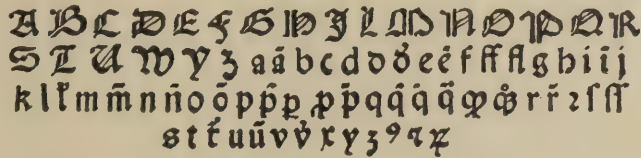 A B C D E F G H J L M N O P Q R
S T U W Y Z a ã b c d d o᷎ e ẽ f ff fl g h i ĩ j
k l ł m m̃ n ñ o õ p p̃ ꝑ ꝓ p̄ q q̃ q̄ q̈ ꝙ r r̃ ꝛ ſ ſſ
s t t̃ u ũ v v̓ x y z ꝯ